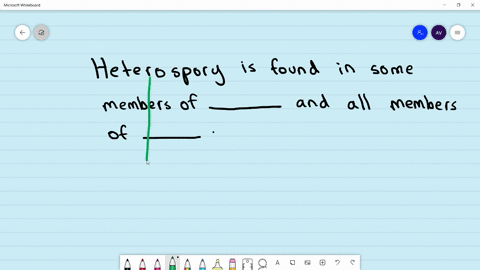 Microsoft Whiteboard
AV
Heterospory is found in some
members of ________ and all members
of ________ .